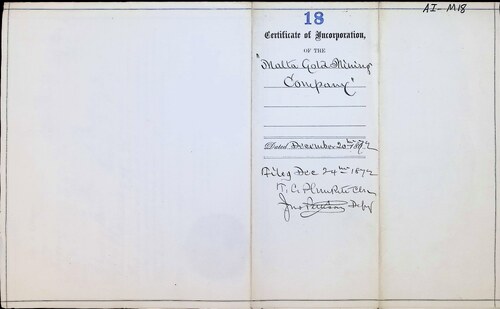 AI-M18
18
Certificate of Incorporation,
OF THE
"Malta Gold Mining
Company"
Dated December 20th 1872
Filed Dec 24th 1872
T. C. Clk
Jno Depy